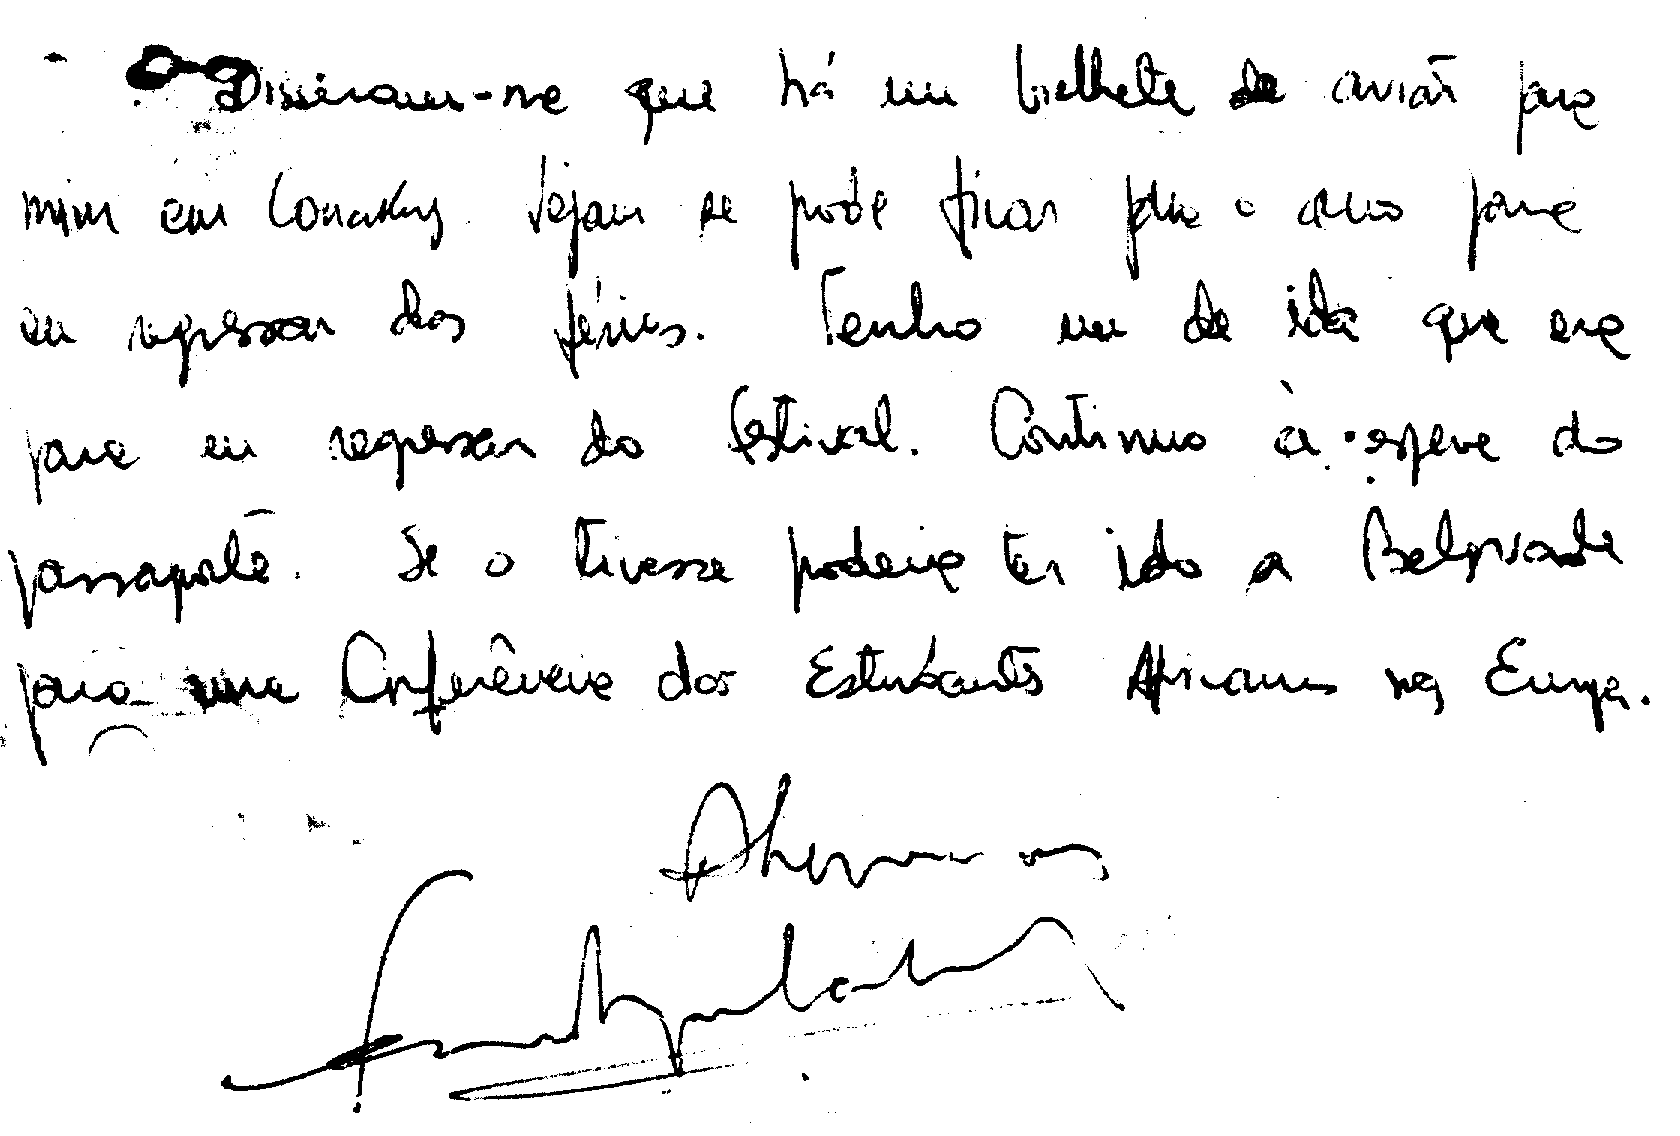 Disseram-me que há um bilhete de avião para
mim em Conakry. Vejam se pode tirar para o ano para
eu regressar das férias. Tenho um de ida que era
para eu regressar do festival. Continuo à espera do
passaporte. Se o tivesse poderia ter ido a Belgrade
para uma Conferência dos Estudantes Africanos na Europa.